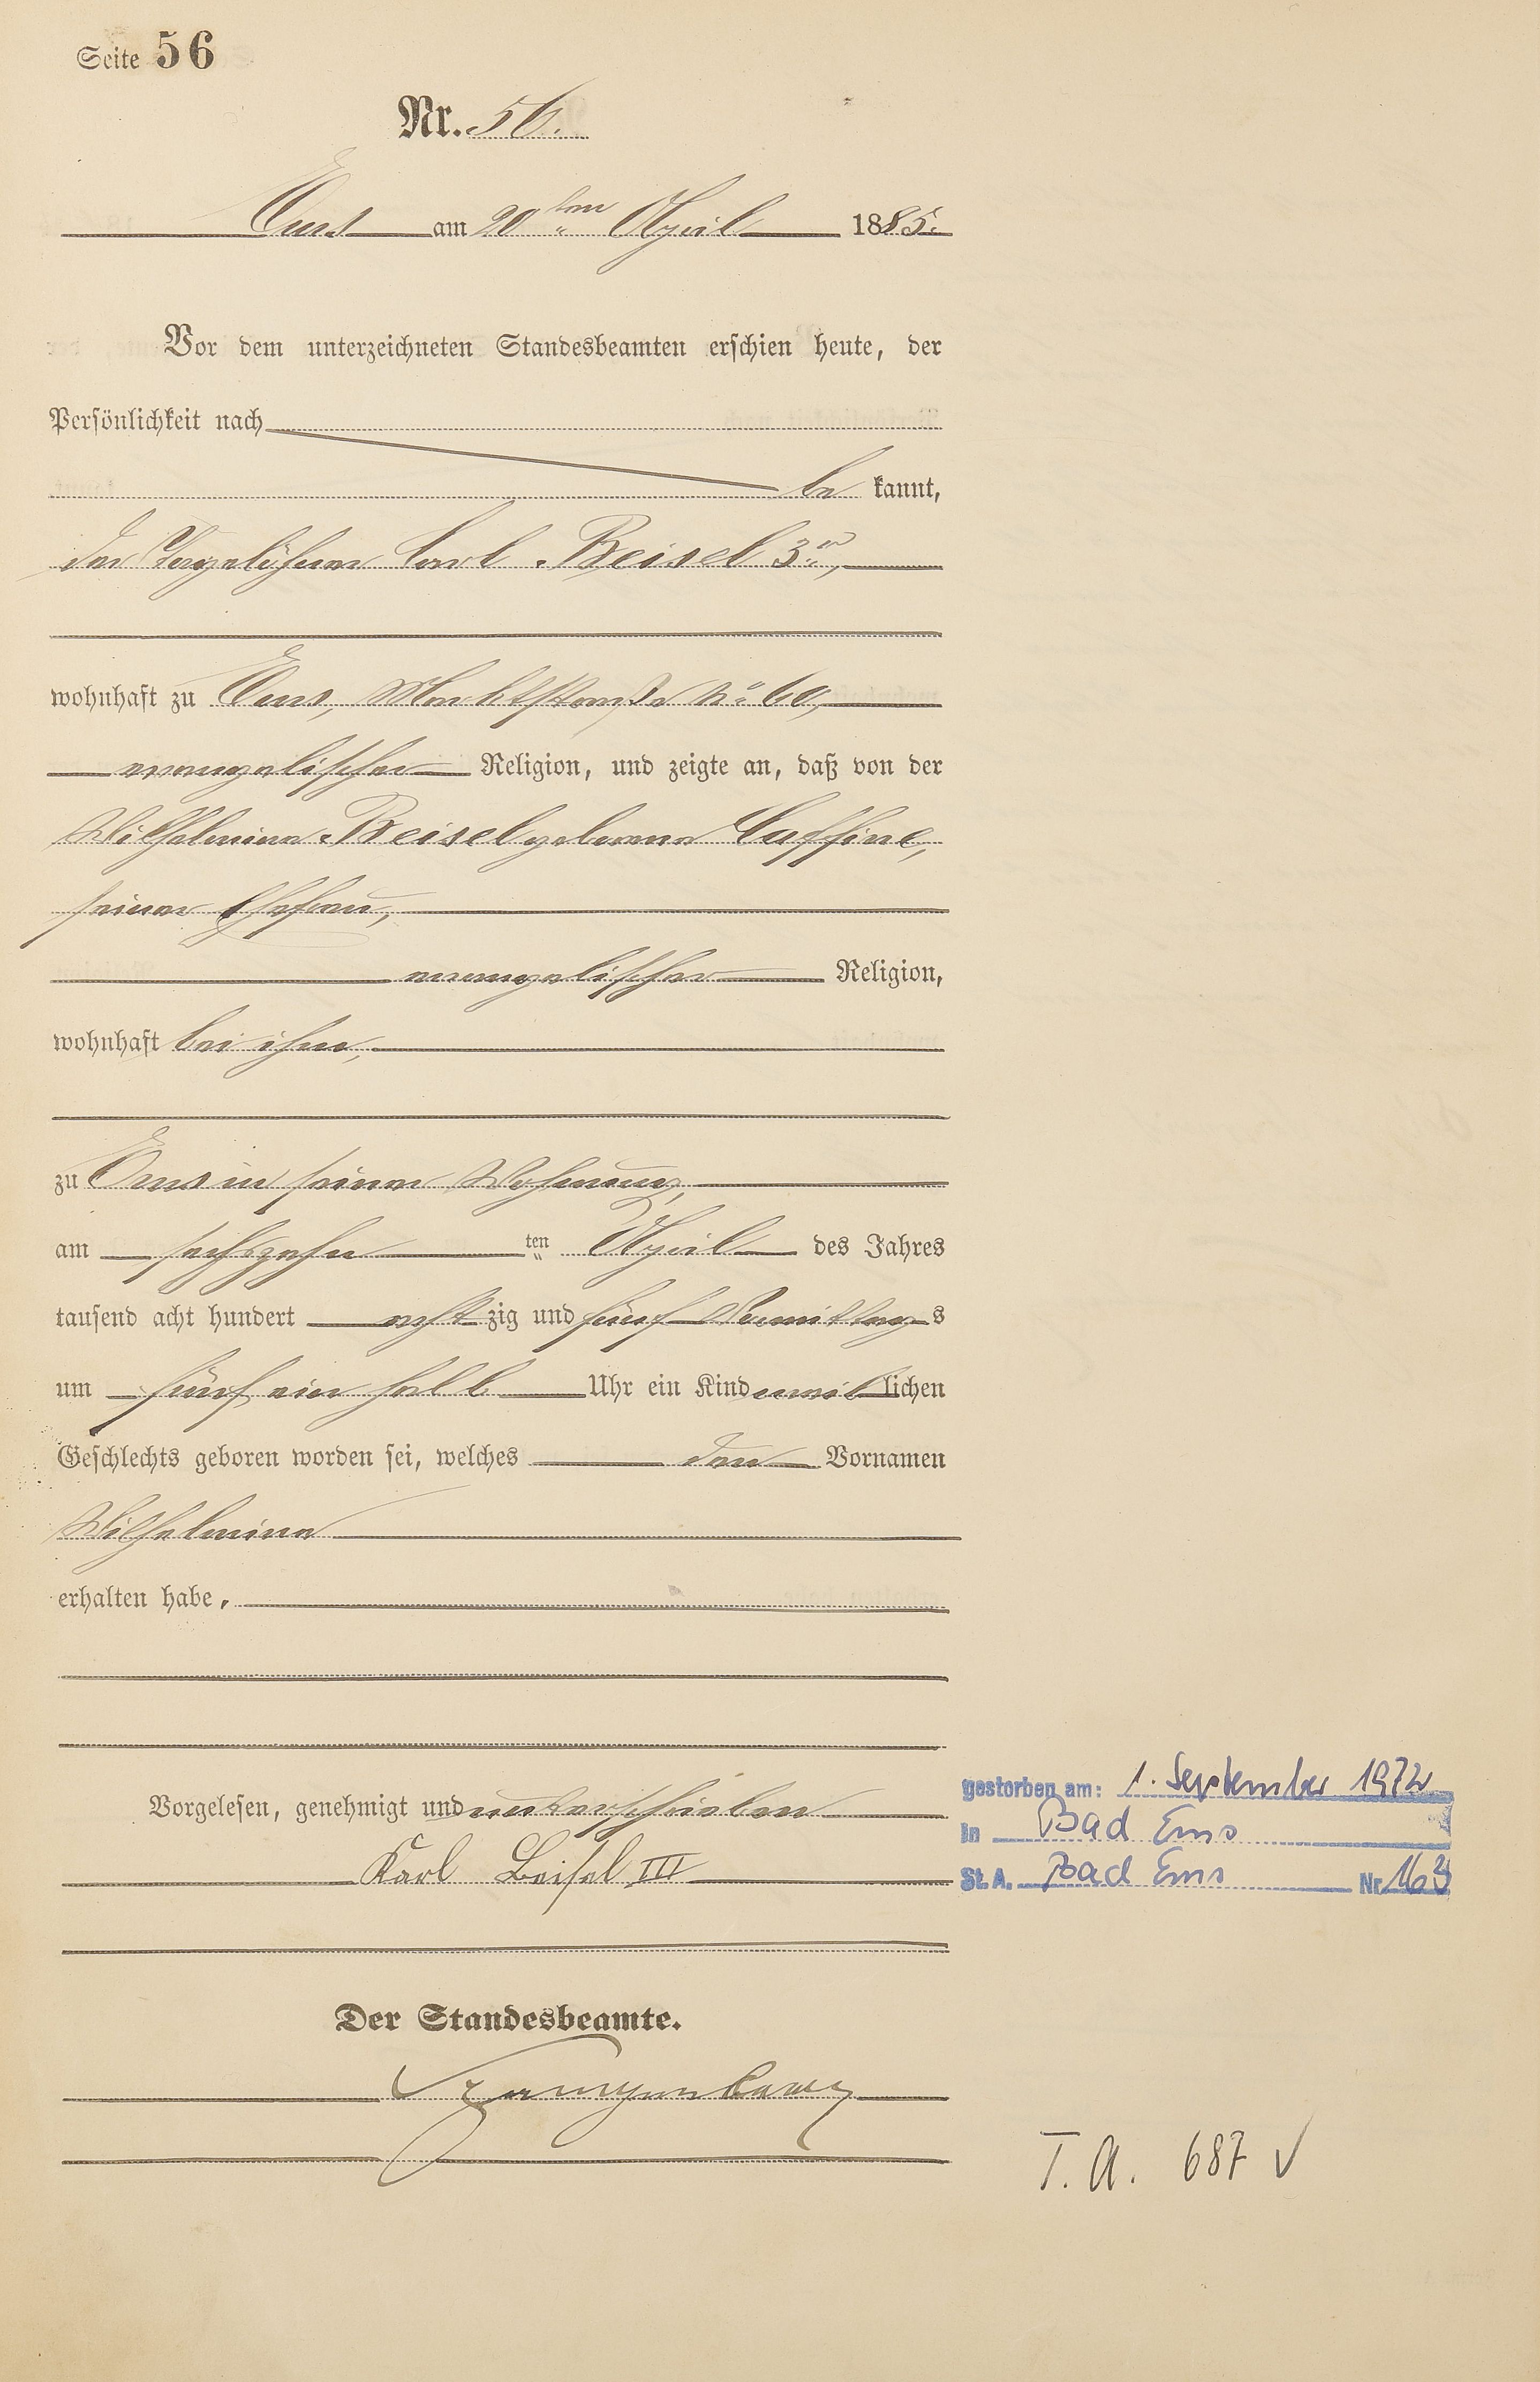 Seite 56
Nr. 56.
Ems am 20ten April 1885.
Vor dem unterzeichneten Standesbeamten erschien heute, der
Persönlichkeit nach
be kannt,
der Tagelöhner Carl Beisel 3r,
wohnhaft zu Ems, Marktstraße No 60,
evangelischer Religion, und zeigte an, daß von der
Wilhelmine Beisel geborene Caffine,
seiner Ehefrau,
evangelischer Religion,
wohnhaft bei ihm,
zu Ems in seiner Wohnung,
am sechszehn ten April des Jahres
tausend acht hundert acht zig und fünf Vormittags
um fünf ein halb Uhr ein Kind weiblichen
Geschlechts geboren worden sei, welches den Vornamen
Wilhelmine
erhalten habe.
Vorgelesen, genehmigt und unterschrieben
Karl Beisel III
Der Standesbeamte.
gestorben am: 1. September 1972
in Bad Ems
St. A. Bad Ems Nr. 163
T. A. 687 √